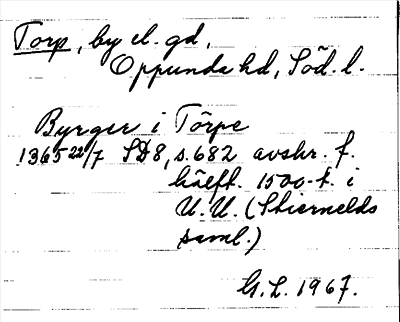 Torp, by el. gd,
Oppunda hd, Söd. l.
Byrger i Törpe
1365 22/7 SD 8, s. 682 avskr. f.
hälft. 1500-t. i
U.U. (Stiernelds
saml.)
G.L. 1967.